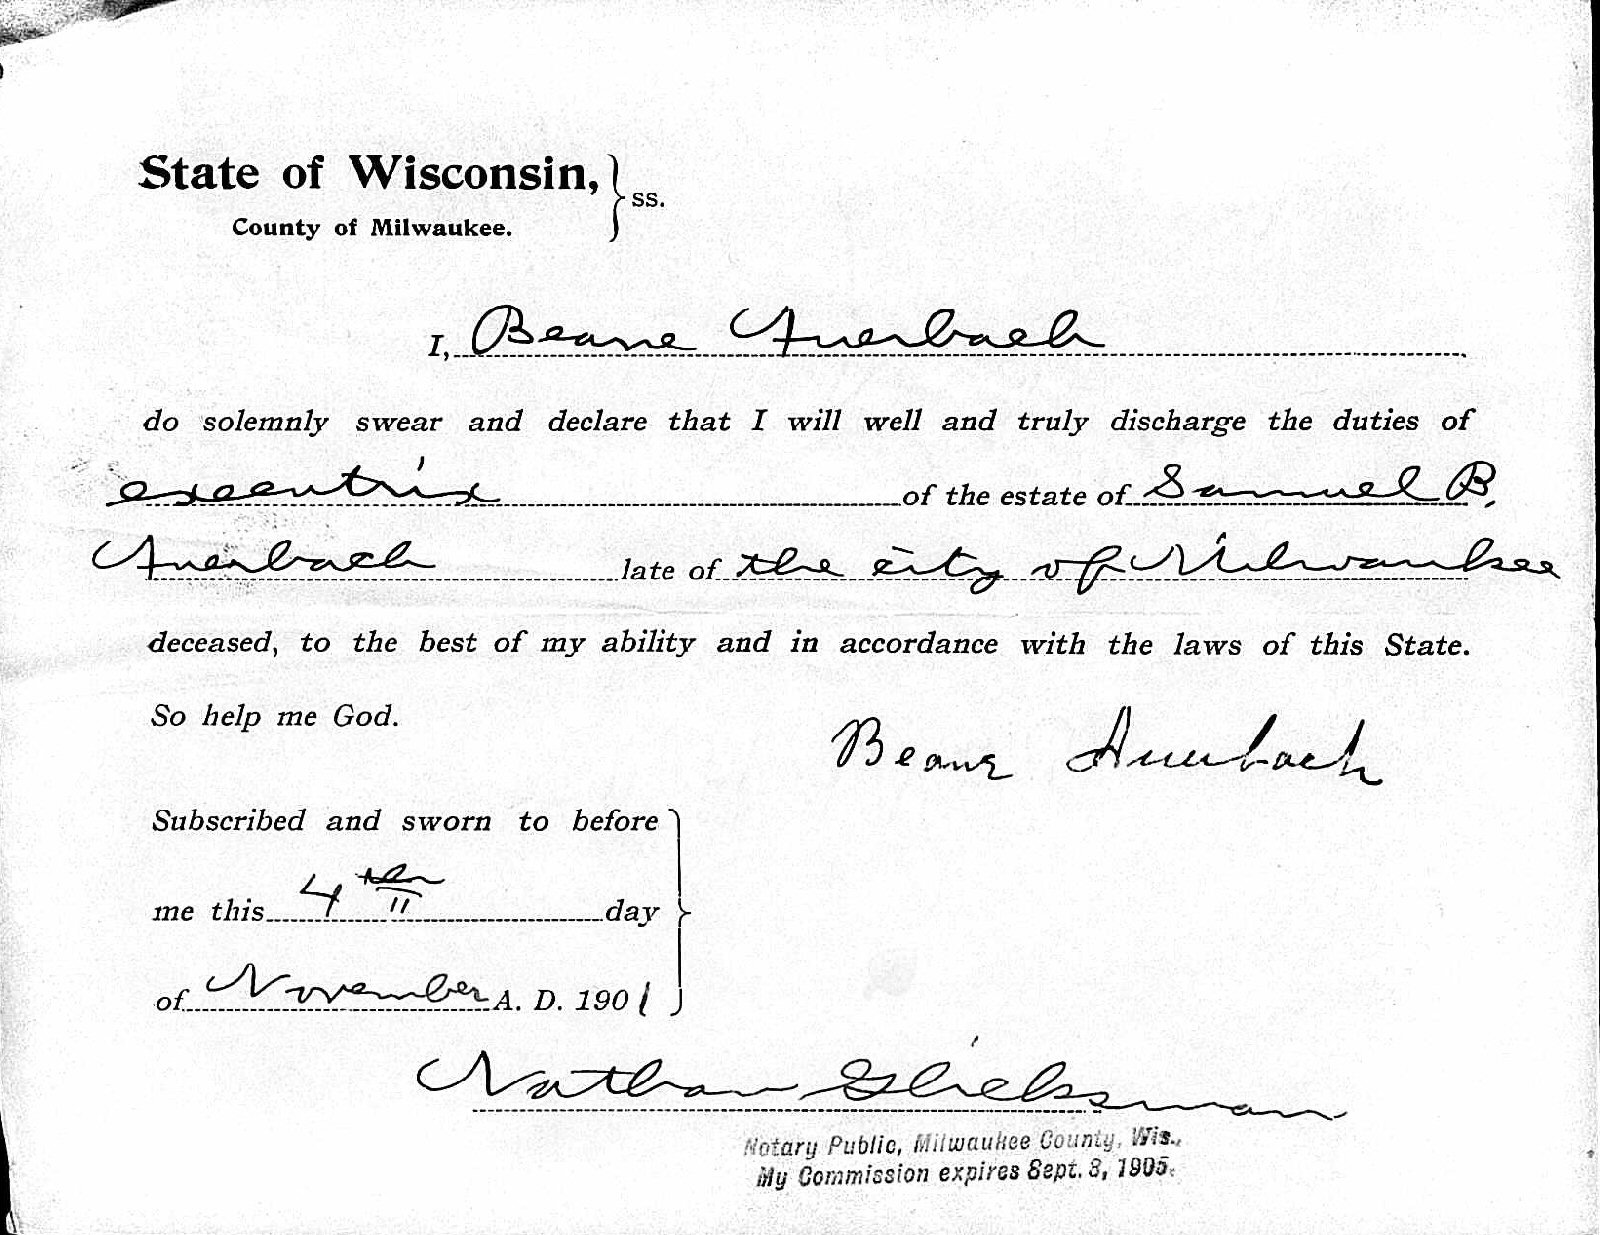 State of Wisconsin, } ss.
County of Milwaukee.
I, Beane Auerbach
do solemnly swear and declare that I will well and truly discharge the duties of
executrix of the estate of Samuel B.
Auerbach late of the city of Milwaukee
deceased, to the best of my ability and in accordance with the laws of this State.
So help me God.
Beane Auerbach
Subscribed and sworn to before
me this 4th day
of November A. D. 1901
Nathan Glicksman
Notary Public, Milwaukee County, Wis.,
My Commission expires Sept. 3, 1905.